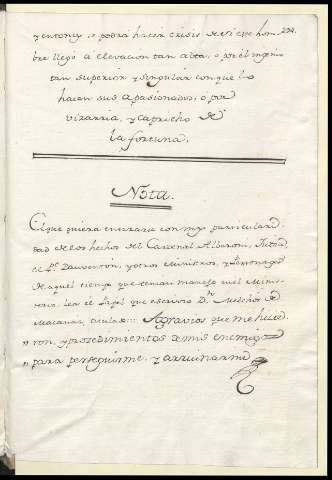 y entonces se podrá hacer crisis de si ese hom- 234.
bre llegó á elevacion tan alta, ó por el ingenio
tan superior y singular con que lo
hacen sus apasionados, ó por
vizarria, y capricho de
la fortuna.
Nota.
El que quiera enterarse con mas particulari-
dad de los hechos del Cardenal Alberoni,
el Pe. Dauventon, y otros Ministros, y Personages
de aquel tiempo que tenian manejo en el Minis-
terio, lea el Papel que escrivio Dn. Melchor de
Macanaz, titulado::: Agravios que me hicie
ron, y procedimientos de mis enemigos
para perseguirme, y arruinarme